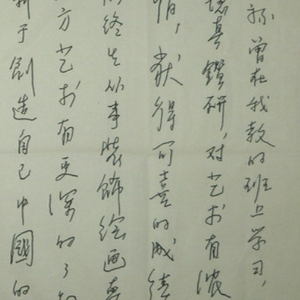 孙曾在我教的班上学习,
真鑽研,对艺术有浓
情,获得可喜的成绩
终生从事装饰绘画
方艺术有更深的了
于創造自己中國的